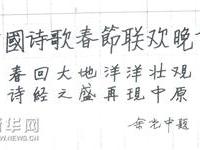 國詩歌春節联欢晚
春回大地洋洋壮观
诗经之盛再现中原
余光中題
华网